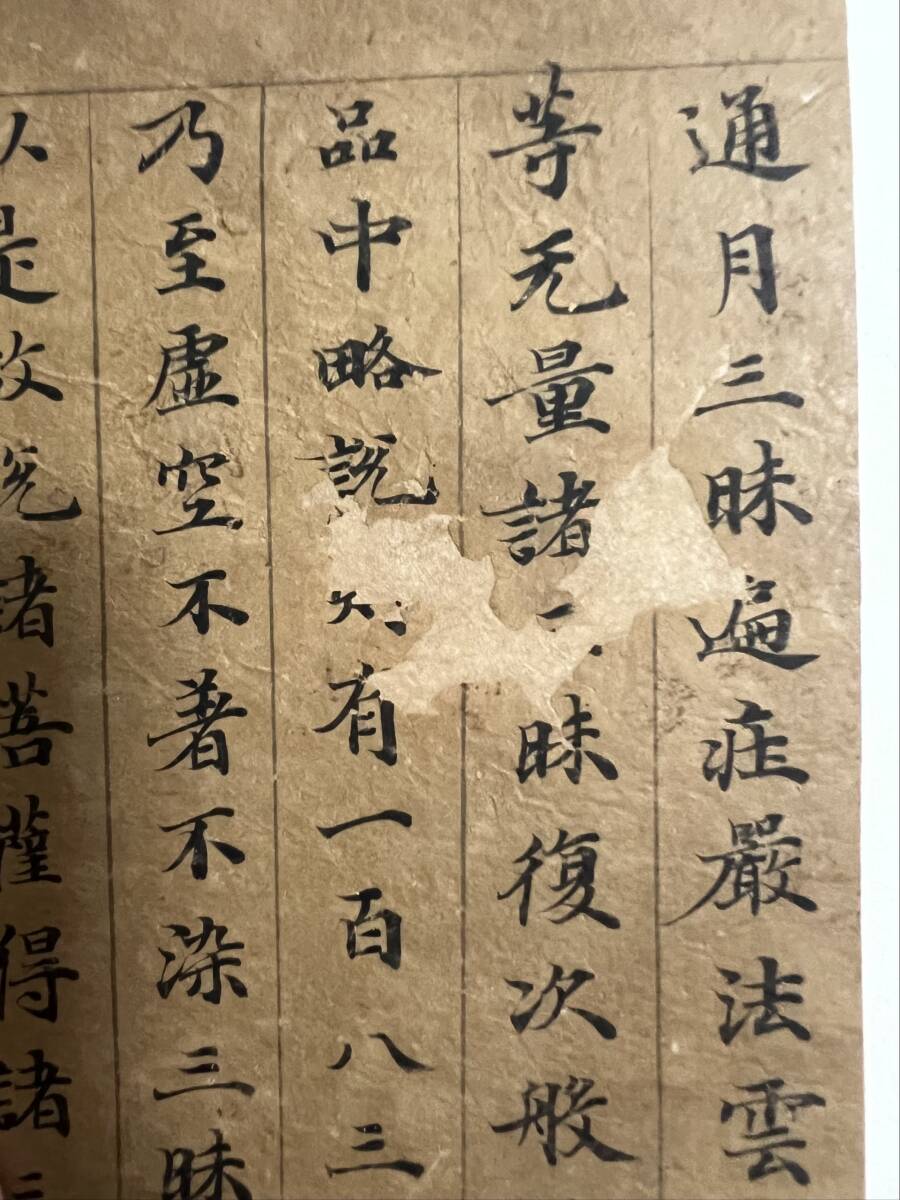 通月三昧遍庄嚴法雲
等无量諸三昧復次般
品中略說有一百八三
乃至虛空不著不染三昧
以是故說諸菩薩得諸三